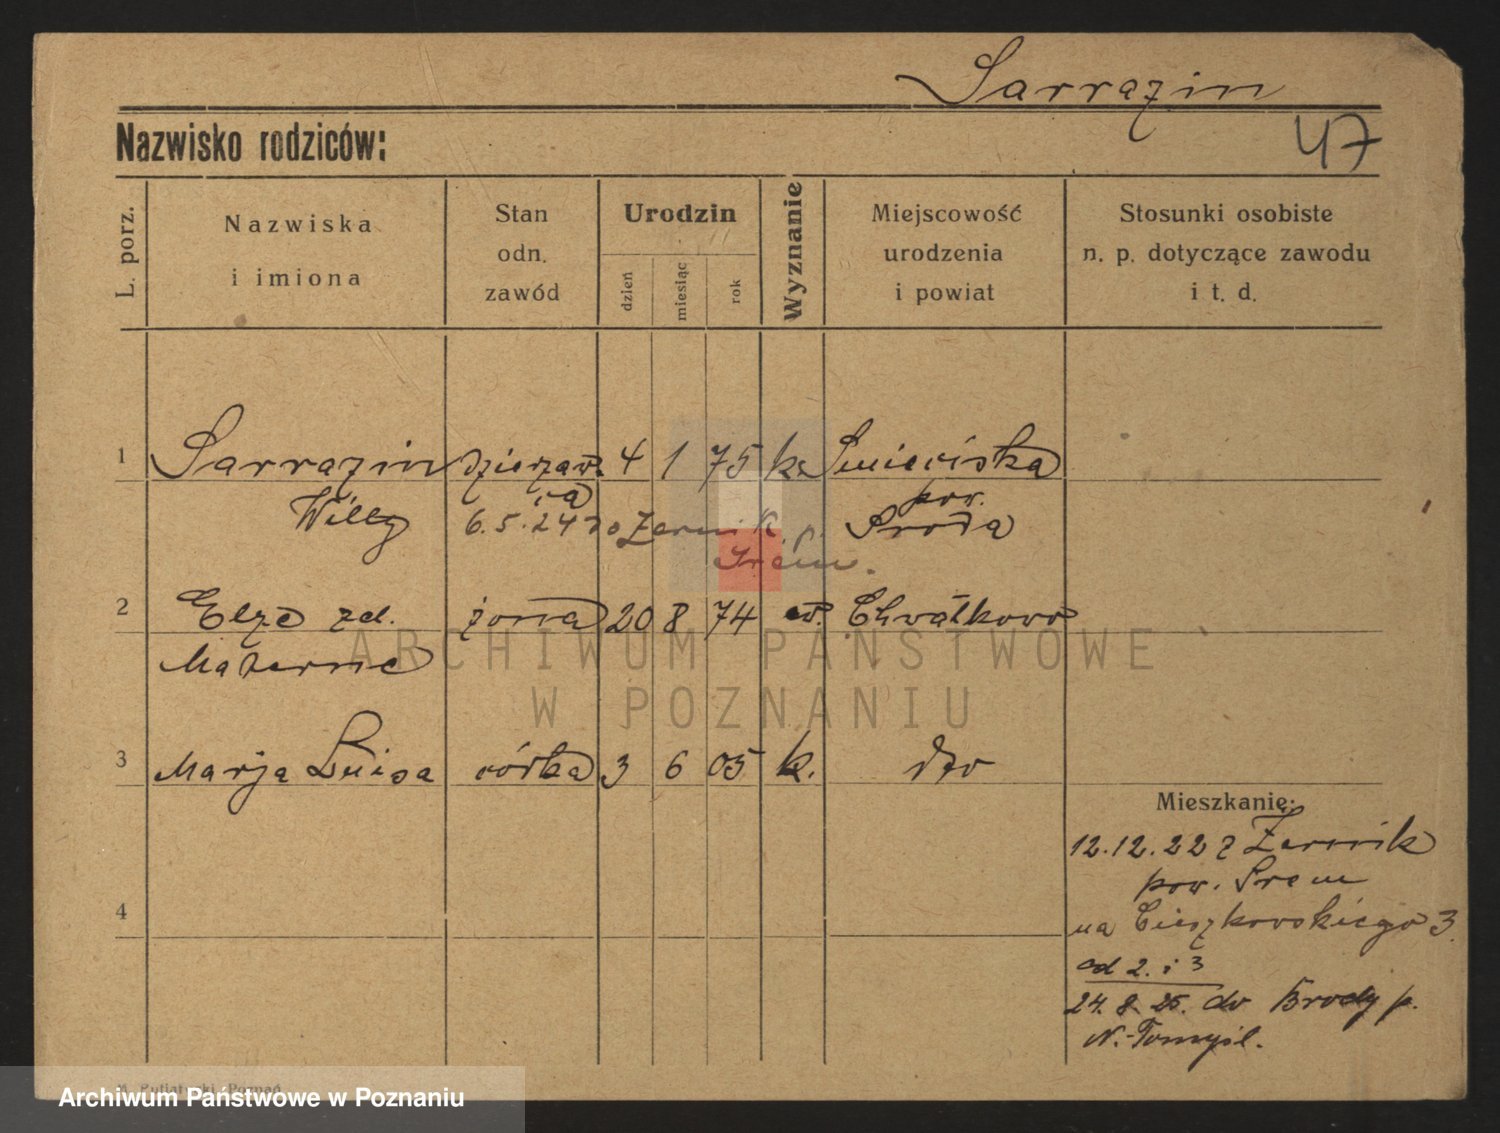 Sarrazin
Nazwisko rodziców:
47
L. porz.
Nazwiska
i imiona
Stan
odn.
zawód
Urodzin
dzień
miesiąc
rok
Wyznanie
Miejscowość
urodzenia
i powiat
Stosunki osobiste
n. p. dotyczące zawodu
i t. d.
1 Sarrazin dzierżaw. 4 1 75 k.
Willy ca pow.
6.5.24 do Żernik p. Środa
Śrem.
2 Elza zd. żona 20 8 74 ew. Chwałkowo
Materne
3 Marja Luisa córka 3 6 05 k. dto
Mieszkanie:
12.12.22 z Żernik
pow. Śrem
4
na Cieszkowskiego 3
ad 2. i 3
24. 8. 25. do Brody p.
N.-Tomyśl.
ARCHIWUM PAŃSTWOWE
W POZNANIU
Poznań
Archiwum Państwowe w Poznaniu